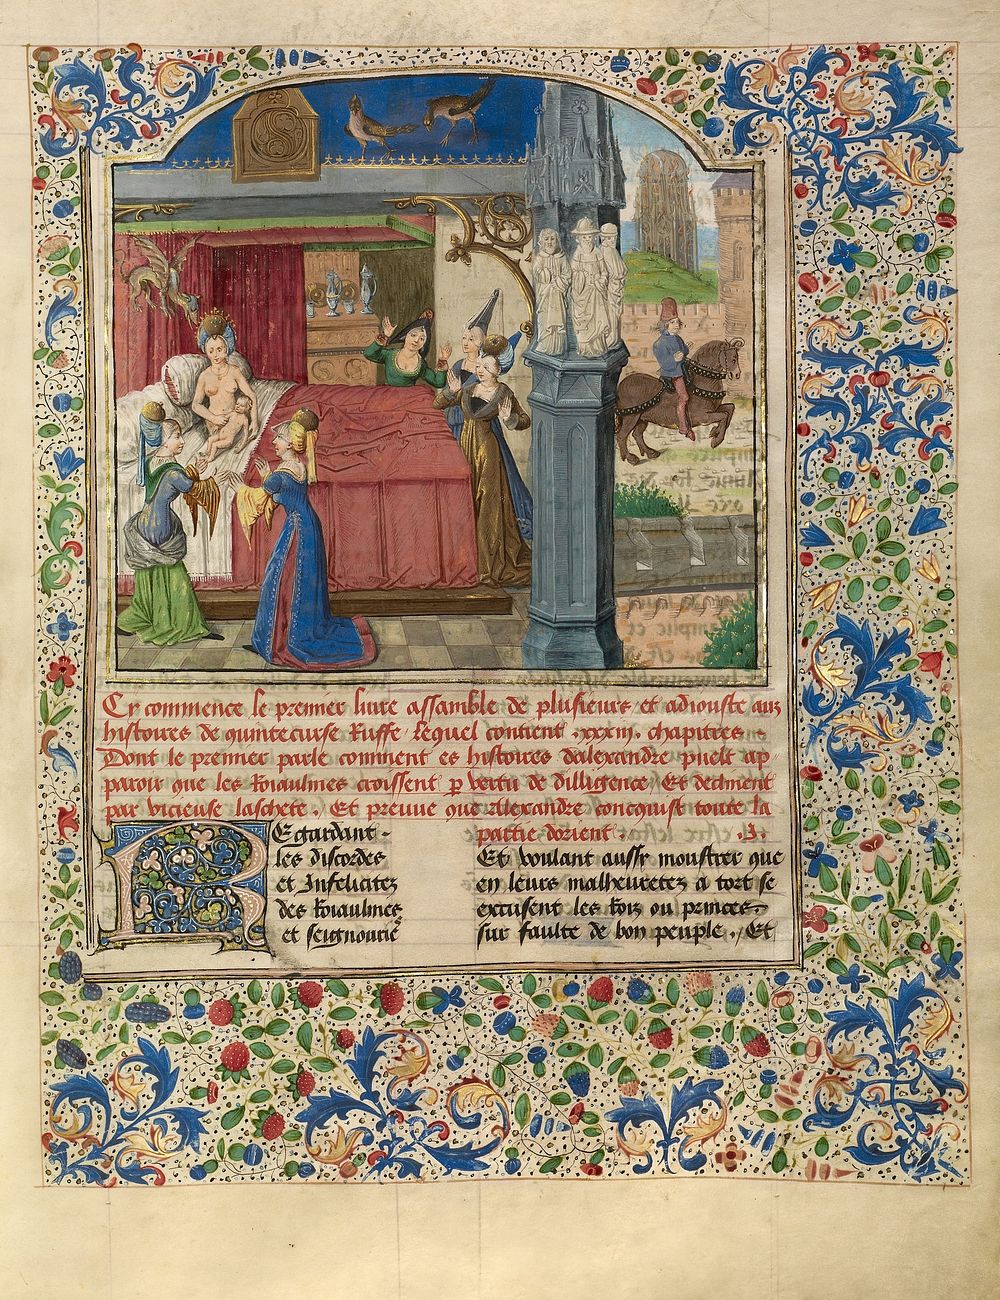 Cy commence le premier livre assamble de plusieurs et adiouste aux
histoires de quinte curse Ruffe lequel contient .xxxiii. chapitres .
Dont le premier parle comment es histoires dalexandre puelt ap-
paroir que les Roiaulmes croissent p vertu de dilligence / Et declinent
par vicieuse laschete . Et preuve que Alexandre conquist toute la
partie dorient . .J.
REgardant
les discordes
et Infelicitez
des Roiaulmes
et seignourie
Et voulant aussy moustrer que
en leurs malheuretez a tort se
excusent les Roiz ou princes
sur faulte de bon peuple . / Et